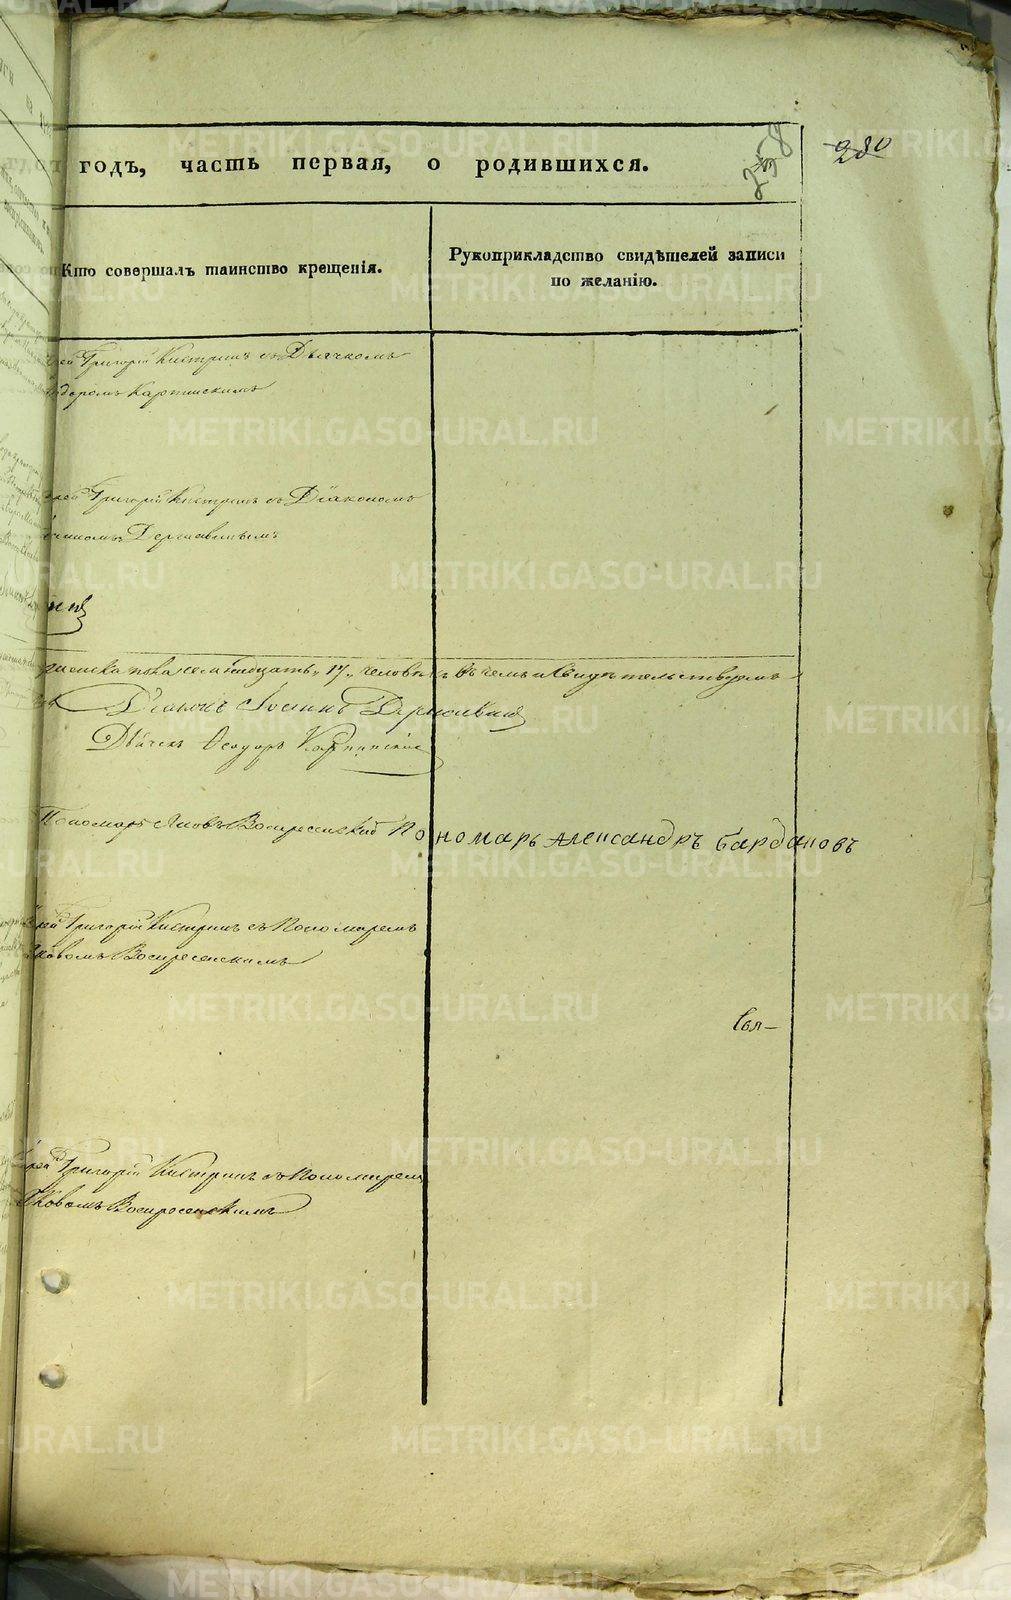 годъ, часть первая, о родившихся.
238
280
Кто совершалъ таинство крещенія.
Рукоприкладство свидѣтелей записи
по желанію.
Григорій Кистринъ съ Дьячкомъ
Карпинскимъ
Григорій Кистринъ съ Діакономъ
Державинымъ
семнадцать „17„ человѣкъ въ чемъ и свидѣтельствуемъ
Діаконъ Іоаннъ Державинъ
Дьячекъ Ѳеодоръ Карпинскій
Пономарь Яковъ Воскресенскій Пономарь Александръ Бардаковъ
Григорій Кистринъ съ Пономаремъ
Яковомъ Воскресенскимъ
Свя-
Григорій Кистринъ съ Пономаремъ
Яковомъ Воскресенскимъ
METRIKI.GASO-URAL.RU